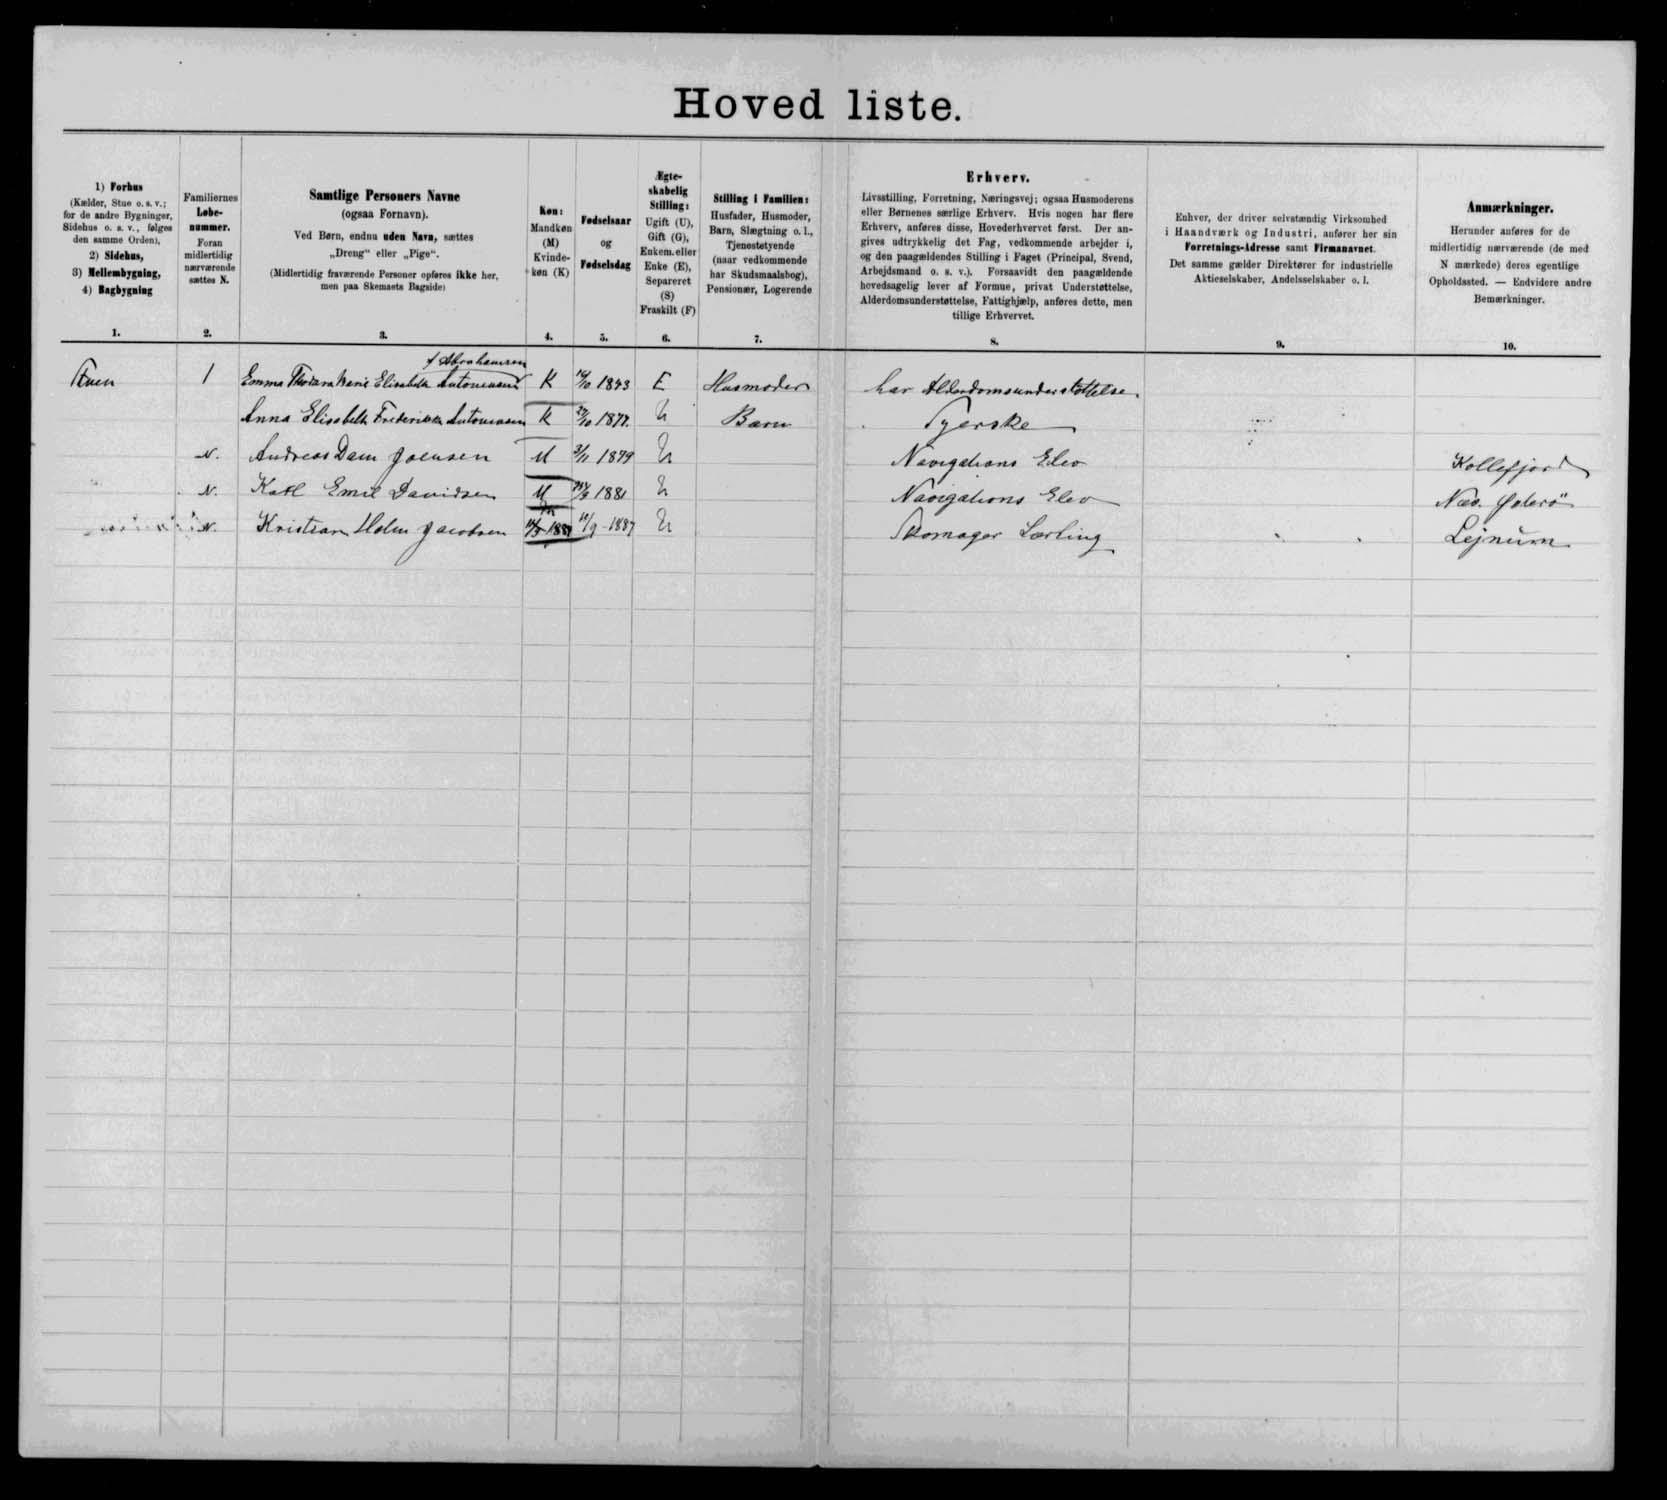 Hoved liste.
1) Forhus
(Kælder, Stue o. s. v.;
for de andre Bygninger,
Sidehus o. s. v., følges
den samme Orden),
2) Sidehus,
3) Mellembygning,
4) Bagbygning
1.
Familiernes
Løbe-
nummer.
Foran
midlertidig
nærværende
sættes N.
2.
Samtlige Personers Navne
(ogsaa Fornavn).
Ved Børn, endnu uden Navn, sættes
„Dreng“ eller „Pige“.
(Midlertidig fraværende Personer opføres ikke her,
men paa Skemaets Bagside)
3.
Køn:
Mandkøn
(M)
Kvinde-
køn (K)
4.
Fødselsaar
og
Fødselsdag
5.
Ægte-
skabelig
Stilling:
Ugift (U),
Gift (G),
Enkem. eller
Enke (E),
Separeret
(S)
Fraskilt (F)
6.
Stilling i Familien:
Husfader, Husmoder,
Barn, Slægtning o. l.,
Tjenestetyende
(naar vedkommende
har Skudsmaalsbog),
Pensionær, Logerende
7.
Erhverv.
Livsstilling, Forretning, Næringsvej; ogsaa Husmoderens
eller Børnenes særlige Erhverv. Hvis nogen har flere
Erhverv, anføres disse, Hovederhvervet først. Der an-
gives udtrykkelig det Fag, vedkommende arbejder i,
og den paagældendes Stilling i Faget (Principal, Svend,
Arbejdsmand o. s. v.). Forsaavidt den paagældende
hovedsagelig lever af Formue, privat Understøttelse,
Alderdomsunderstøttelse, Fattighjælp, anføres dette, men
tillige Erhvervet.
8.
Enhver, der driver selvstændig Virksomhed
i Haandværk og Industri, anfører her sin
Forretnings-Adresse samt Firmanavnet.
Det samme gælder Direktører for industrielle
Aktieselskaber, Andelsselskaber o. l.
9.
Anmærkninger.
Herunder anføres for de
midlertidig nærværende (de med
N mærkede) deres egentlige
Opholdssted. — Endvidere andre
Bemærkninger.
10.
f Abrahamsen
1 Emma Marie Elisabeth Antoniusen K 16/10 1843 E Husmoder har Alderdomsunderstøttelse.
Anna Elisabeth Frederikke Antoniusen K 1877. U Barn Syerske
N. Andreas Dam Joensen M 3/11 1879 U Navigations Elev Kollefjord
N. Karl Emil Davidsen M 1881 U Navigations Elev Næs. Østerö
N. Kristian Holm Jacobsen 11/9-1887 U Skomager Lærling Lejnum